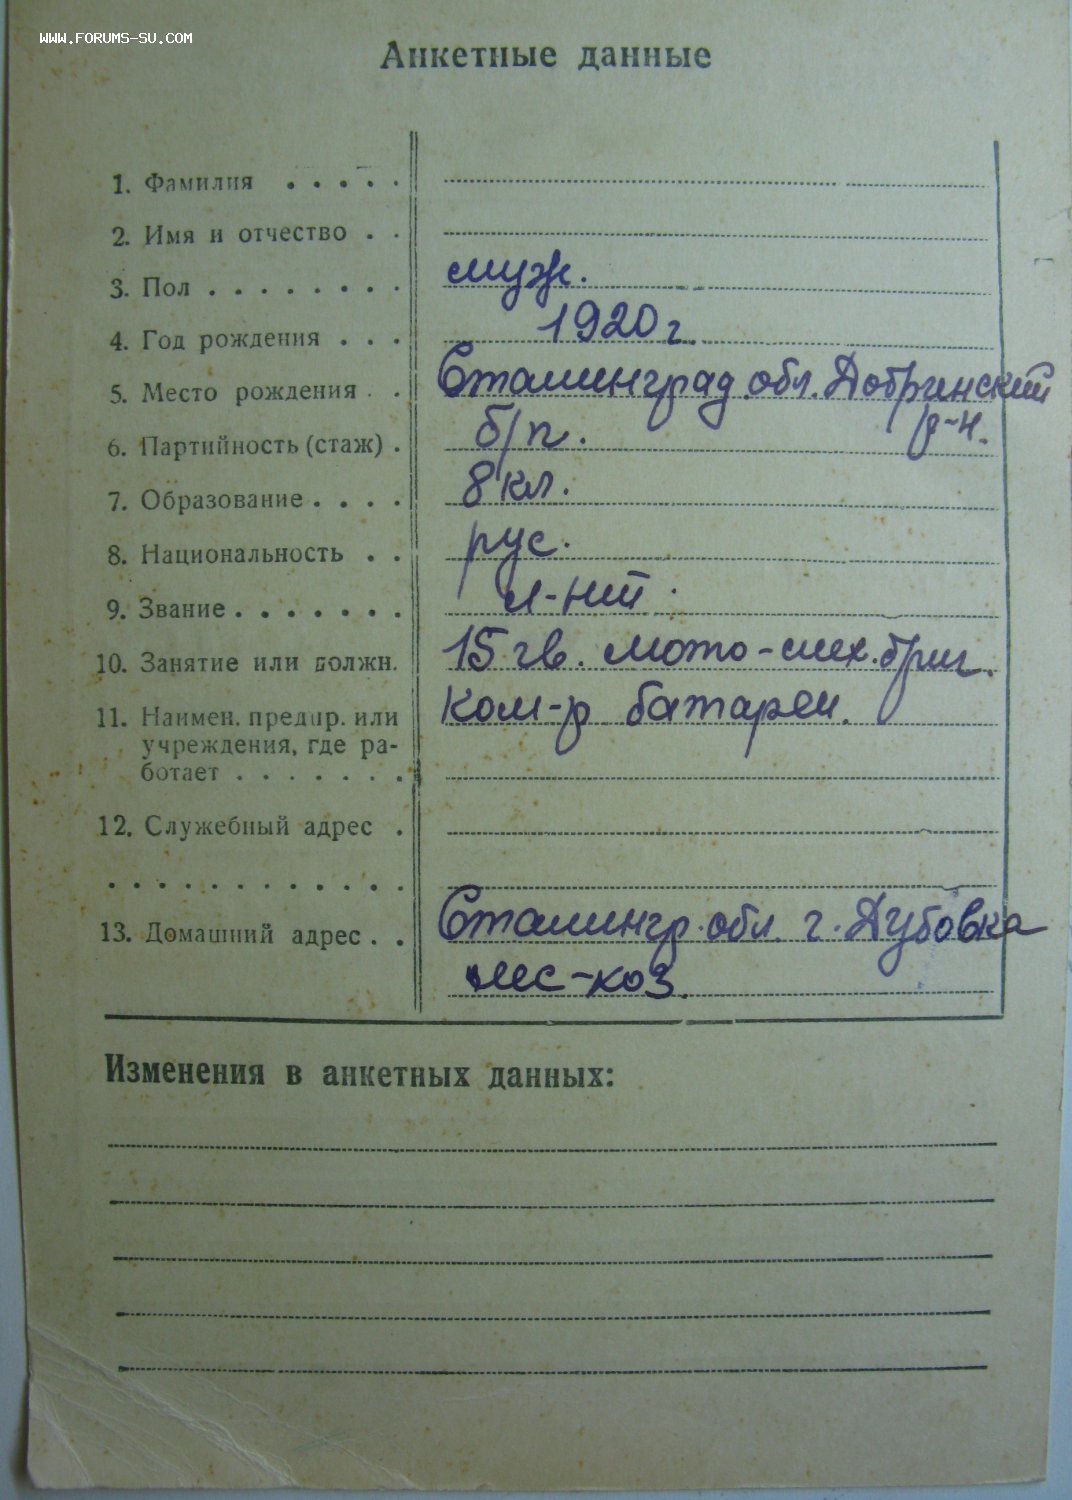 WWW.FORUMS-SU.COM
Анкетные данные
1. Фамилия . . . . .
2. Имя и отчество . .
3. Пол . . . . . . . . муж.
4. Год рождения . . . 1920 г.
5. Место рождения . . Сталинград. обл. Добринский
р-н.
6. Партийность (стаж) . б/п.
7. Образование . . . . 8 кл.
8. Национальность . . рус.
9. Звание . . . . . . . л-нт
10. Занятие или должн. 15 гв. мото-мех. бриг.
11. Наимен. предпр. или ком-р батареи.
учреждения, где ра-
ботает . . . . . . .
12. Служебный адрес .
. . . . . . . . . . . .
13. Домашний адрес . . Сталингр. обл. г. Дубовка
мес-коз.
Изменения в анкетных данных: